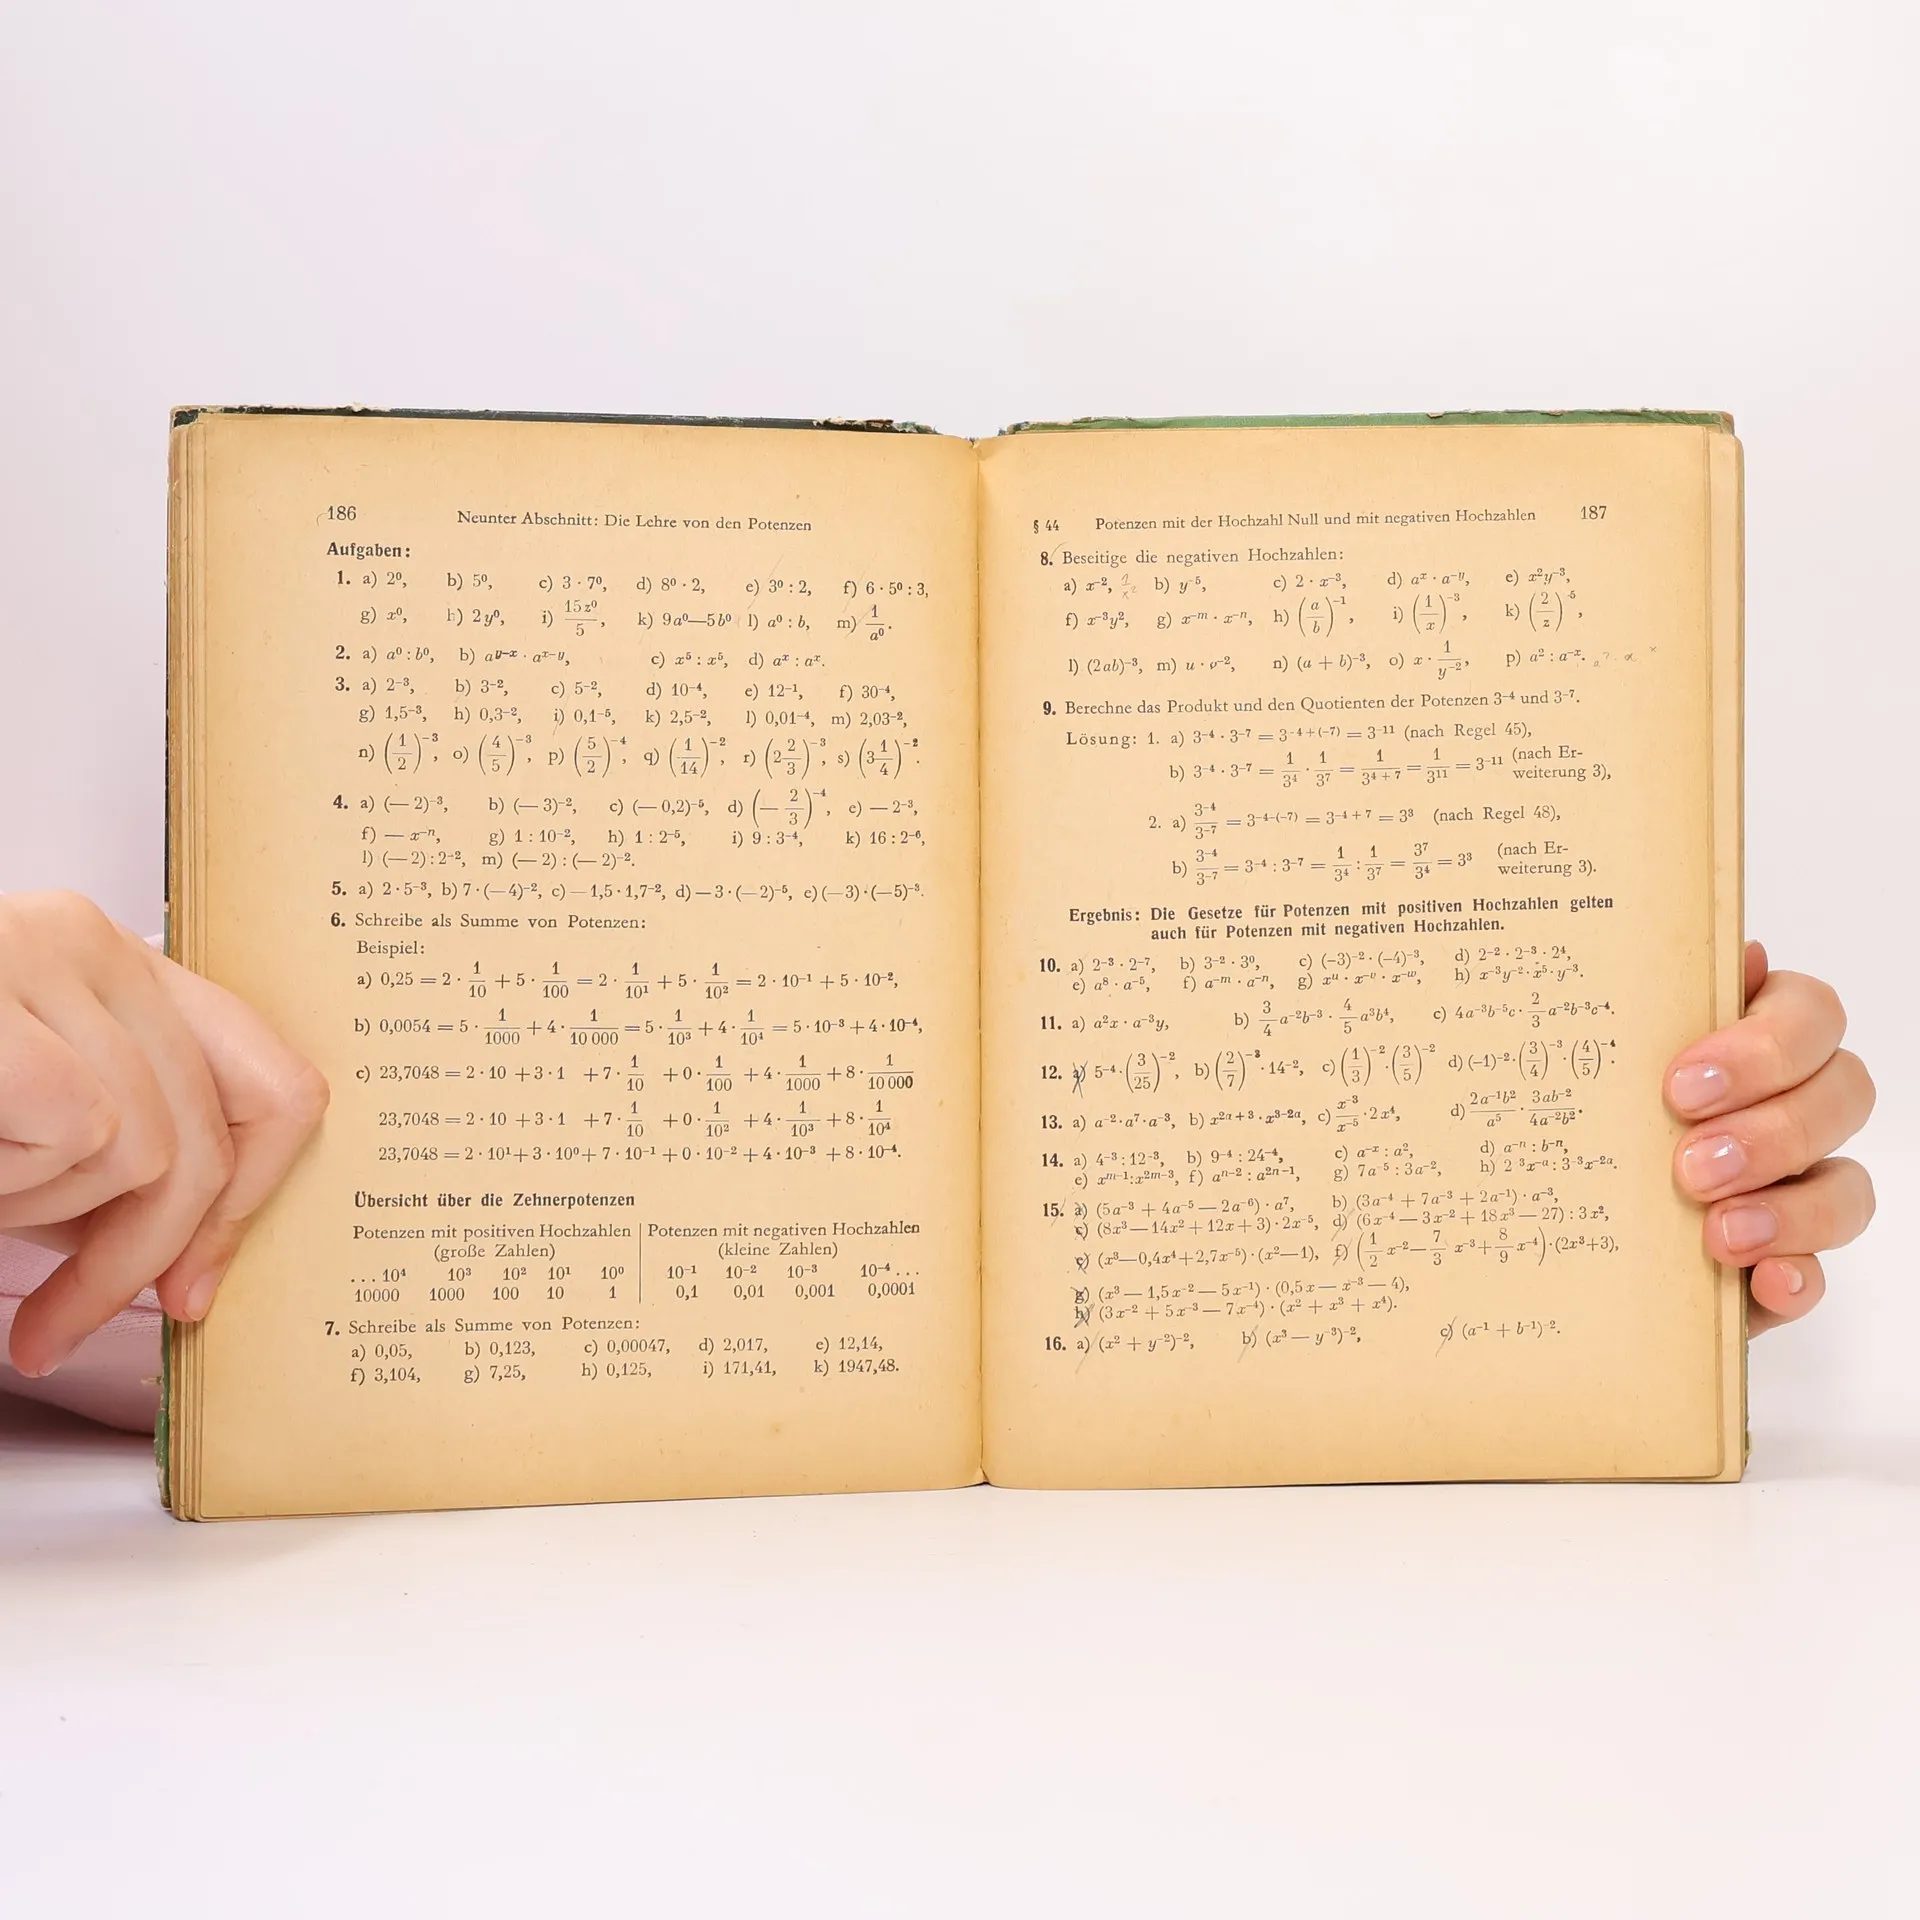 186 Neunter Abschnitt: Die Lehre von den Potenzen
Aufgaben:
1. a) 2⁰, b) 5⁰, c) 3 · 7⁰, d) 8⁰ · 2, e) 3⁰ : 2, f) 6 · 5⁰ : 3,
g) x⁰, h) 2y⁰, i) 15z⁰/5, k) 9a⁰—5b⁰ l) a⁰ : b, m) 1/a⁰.
2. a) a⁰ : b⁰, b) a^(y−x) · a^(x−y), c) x⁵ : x⁵, d) aˣ : aˣ.
3. a) 2⁻³, b) 3⁻², c) 5⁻², d) 10⁻⁴, e) 12⁻¹, f) 30⁻⁴,
g) 1,5⁻³, h) 0,3⁻², i) 0,1⁻⁵, k) 2,5⁻², l) 0,01⁻⁴, m) 2,03⁻²,
n) (1/2)⁻³, o) (4/5)⁻³, p) (5/2)⁻⁴, q) (1/14)⁻², r) (2 2/3)⁻³, s) (3 1/4)⁻².
4. a) (— 2)⁻³, b) (— 3)⁻², c) (— 0,2)⁻⁵, d) (— 2/3)⁻⁴, e) — 2⁻³,
f) — x⁻ⁿ, g) 1 : 10⁻², h) 1 : 2⁻⁵, i) 9 : 3⁻⁴, k) 16 : 2⁻⁶,
l) (— 2) : 2⁻², m) (— 2) : (— 2)⁻².
5. a) 2 · 5⁻³, b) 7 · (— 4)⁻², c) — 1,5 · 1,7⁻², d) — 3 · (— 2)⁻⁵, e) (— 3) · (— 5)⁻³.
6. Schreibe als Summe von Potenzen:
Beispiel:
a) 0,25 = 2 · 1/10 + 5 · 1/100 = 2 · 1/10¹ + 5 · 1/10² = 2 · 10⁻¹ + 5 · 10⁻²,
b) 0,0054 = 5 · 1/1000 + 4 · 1/10 000 = 5 · 1/10³ + 4 · 1/10⁴ = 5 · 10⁻³ + 4 · 10⁻⁴,
c) 23,7048 = 2 · 10 + 3 · 1 + 7 · 1/10 + 0 · 1/100 + 4 · 1/1000 + 8 · 1/10 000
23,7048 = 2 · 10 + 3 · 1 + 7 · 1/10 + 0 · 1/10² + 4 · 1/10³ + 8 · 1/10⁴
23,7048 = 2 · 10¹ + 3 · 10⁰ + 7 · 10⁻¹ + 0 · 10⁻² + 4 · 10⁻³ + 8 · 10⁻⁴.
Übersicht über die Zehnerpotenzen
Potenzen mit positiven Hochzahlen | Potenzen mit negativen Hochzahlen
(große Zahlen) (kleine Zahlen)
... 10⁴ 10³ 10² 10¹ 10⁰ 10⁻¹ 10⁻² 10⁻³ 10⁻⁴ ...
10000 1000 100 10 1 0,1 0,01 0,001 0,0001
7. Schreibe als Summe von Potenzen:
a) 0,05, b) 0,123, c) 0,00047, d) 2,017, e) 12,14,
f) 3,104, g) 7,25, h) 0,125, i) 171,41, k) 1947,48.
§ 44 Potenzen mit der Hochzahl Null und mit negativen Hochzahlen 187
8. Beseitige die negativen Hochzahlen:
a) x⁻², b) y⁻⁵, c) 2 · x⁻³, d) aˣ · a^(−y), e) x²y⁻³,
f) x⁻³y², g) x⁻ᵐ · x⁻ⁿ, h) (a/b)⁻¹, i) (1/x)⁻³, k) (2/z)⁻⁵,
l) (2ab)⁻³, m) u · v⁻², n) (a + b)⁻³, o) x · 1/y⁻², p) a² : a⁻ˣ.
9. Berechne das Produkt und den Quotienten der Potenzen 3⁻⁴ und 3⁻⁷.
Lösung: 1. a) 3⁻⁴ · 3⁻⁷ = 3^(−4+(−7)) = 3⁻¹¹ (nach Regel 45),
b) 3⁻⁴ · 3⁻⁷ = 1/3⁴ · 1/3⁷ = 1/3⁴⁺⁷ = 1/3¹¹ = 3⁻¹¹ (nach Er-
weiterung 3),
2. a) 3⁻⁴/3⁻⁷ = 3^(−4−(−7)) = 3⁻⁴⁺⁷ = 3³ (nach Regel 48),
b) 3⁻⁴/3⁻⁷ = 3⁻⁴ : 3⁻⁷ = 1/3⁴ : 1/3⁷ = 3⁷/3⁴ = 3³ (nach Er-
weiterung 3).
Ergebnis: Die Gesetze für Potenzen mit positiven Hochzahlen gelten
auch für Potenzen mit negativen Hochzahlen.
10. a) 2⁻³ · 2⁻⁷, b) 3⁻² · 3⁰, c) (−3)⁻² · (−4)⁻³, d) 2⁻² · 2⁻³ · 2⁴,
e) a⁸ · a⁻⁵, f) a⁻ᵐ · a⁻ⁿ, g) xᵘ · x⁻ᵛ · x⁻ʷ, h) x⁻³y⁻² · x⁵ · y⁻³.
11. a) a²x · a⁻³y, b) 3/4 a⁻²b⁻³ · 4/5 a³b⁴, c) 4a⁻³b⁻⁵c · 2/3 a⁻²b⁻³c⁻⁴.
12. a) 5⁻⁴ · (3/25)⁻², b) (2/7)⁻³ · 14⁻², c) (1/3)⁻² · (3/5)⁻² d) (−1)⁻² · (3/4)⁻³ · (4/5)⁻⁴.
13. a) a⁻² · a⁷ · a⁻³, b) x^(2a+3) · x^(3−2a), c) x⁻³/x⁻⁵ · 2x⁴, d) 2a⁻¹b²/a⁵ · 3ab⁻²/4a⁻²b².
14. a) 4⁻³ : 12⁻³, b) 9⁻⁴ : 24⁻⁴, c) a⁻ˣ : a², d) a⁻ⁿ : b⁻ⁿ,
e) x^(m−1) : x^(2m−3), f) a^(n−2) : a^(2n−1), g) 7a⁻⁵ : 3a⁻², h) 2⁻³x^(−a) : 3⁻³x^(−2a).
15. a) (5a⁻³ + 4a⁻⁵ — 2a⁻⁶) · a⁷, b) (3a⁻⁴ + 7a⁻³ + 2a⁻¹) · a⁻³,
c) (8x³ — 14x² + 12x + 3) · 2x⁻⁵, d) (6x⁻⁴ — 3x⁻² + 18x³ — 27) : 3x²,
e) (x³ — 0,4x⁴ + 2,7x⁻⁵) · (x² — 1), f) (1/2 x⁻² — 7/3 x⁻³ + 8/9 x⁻⁴) · (2x³ + 3),
g) (x³ — 1,5x⁻² — 5x⁻¹) · (0,5x — x⁻³ — 4),
h) (3x⁻² + 5x⁻³ — 7x⁻⁴) · (x² + x³ + x⁴).
16. a) (x² + y⁻²)⁻², b) (x³ — y⁻³)⁻², c) (a⁻¹ + b⁻¹)⁻².